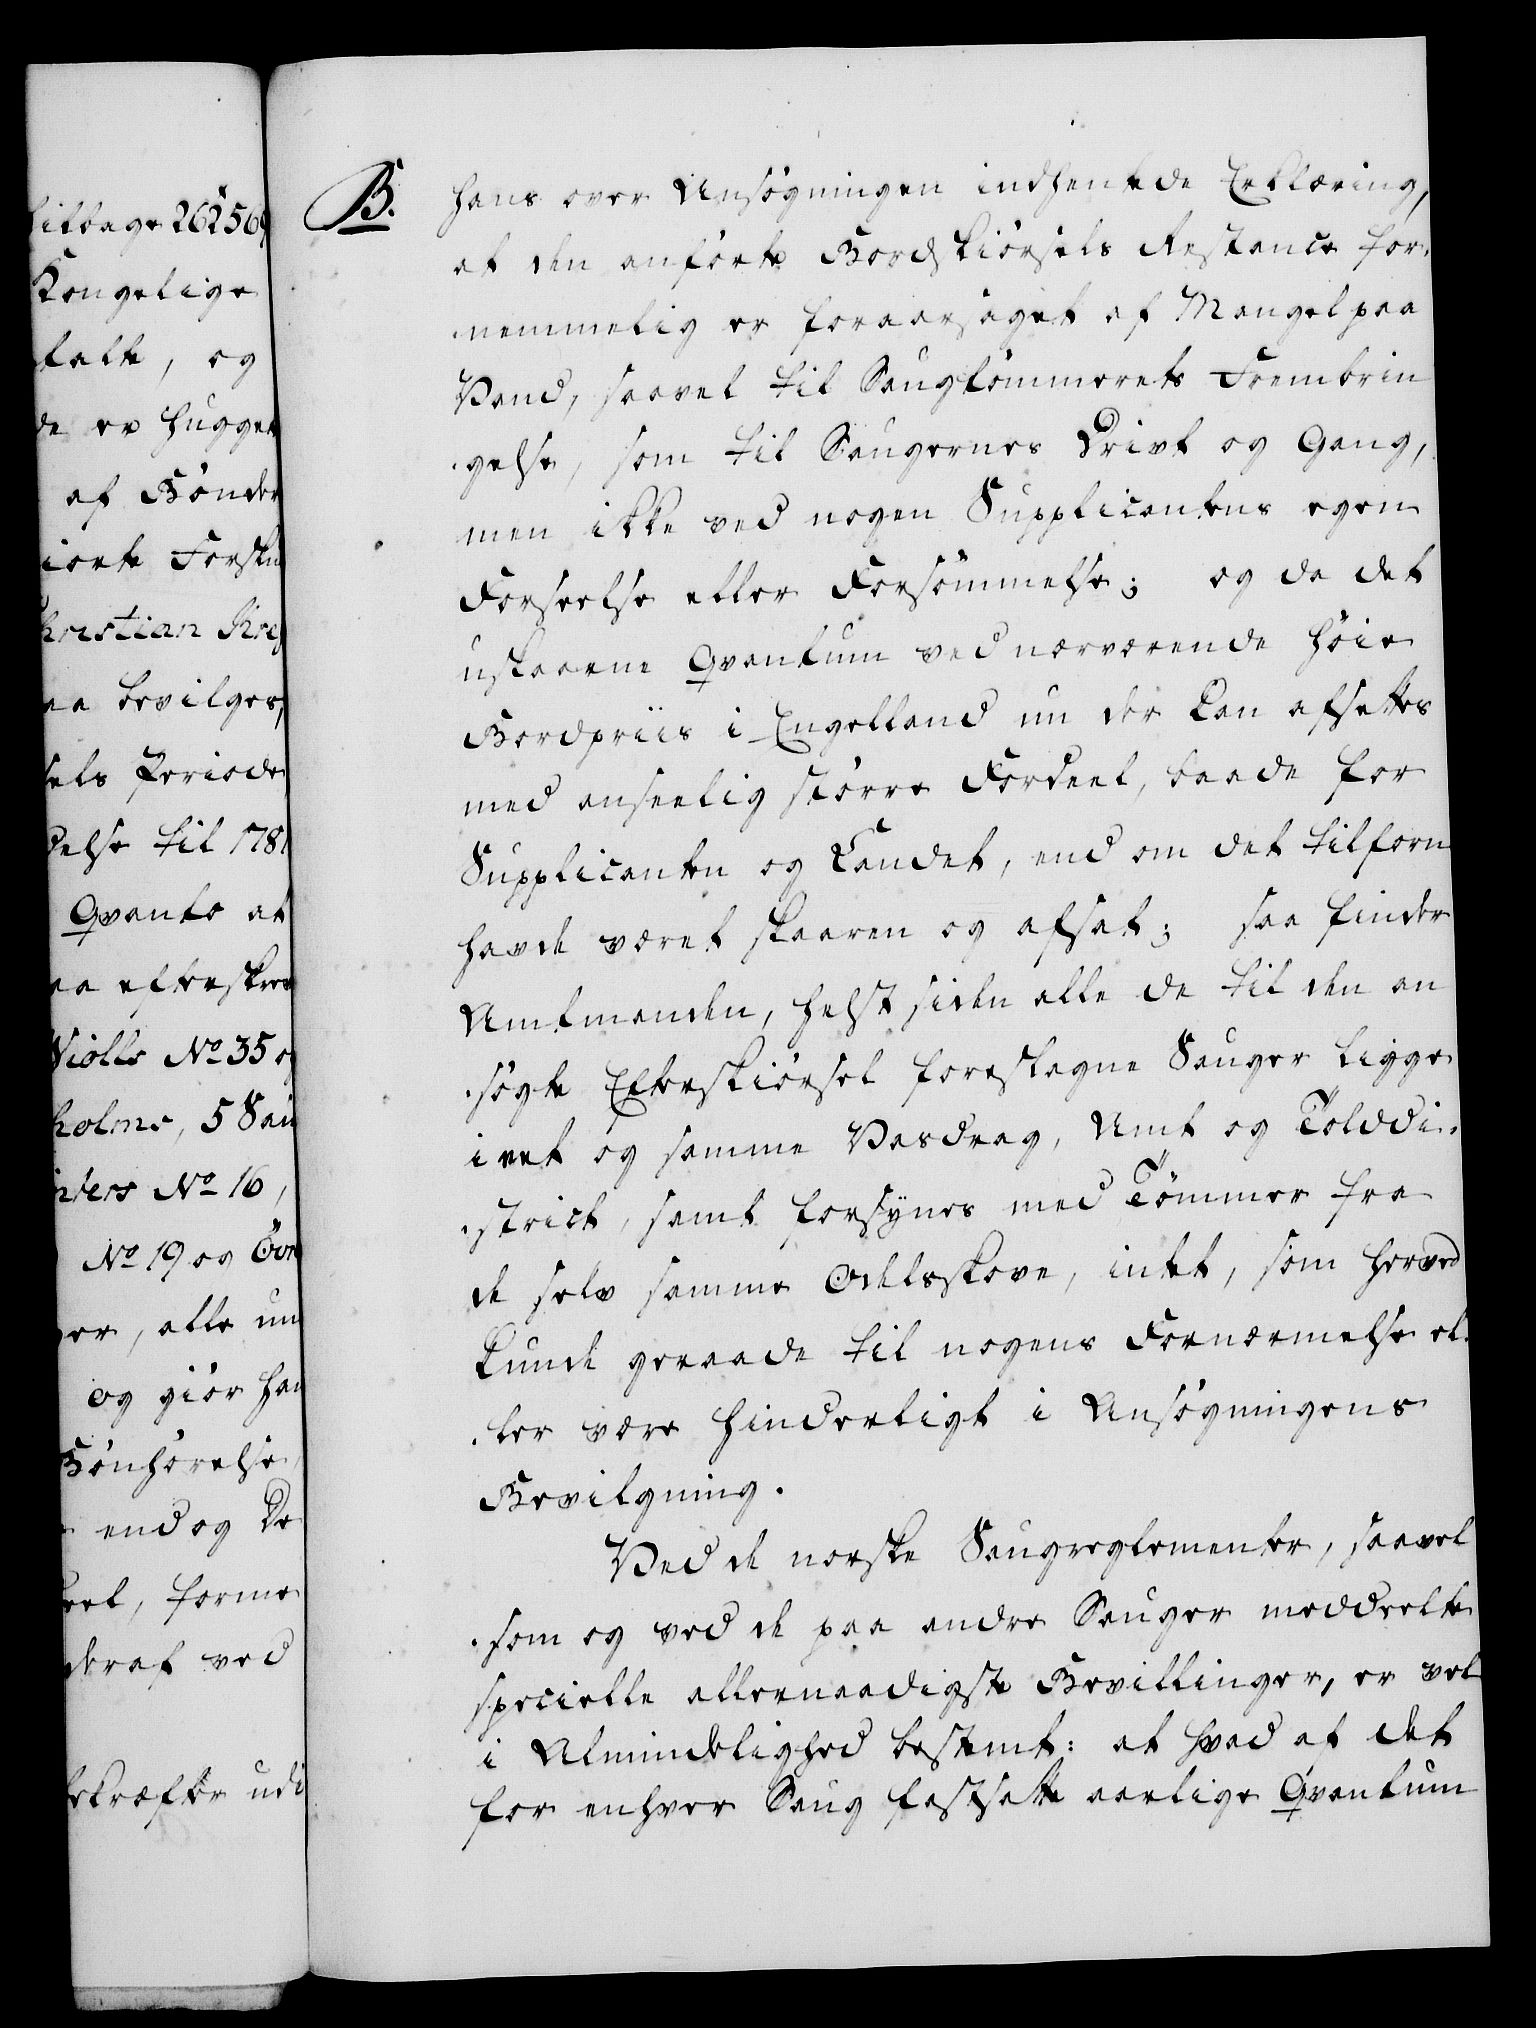 tilbage 262569
Kongelige
talte, og
de er hugget
af Bönder
giorte Forsku
Christian
aa bevilges,
sels Periode
delse til 1781
Qvanto at
aa efterskree
Niolls No 35 og
holms, 5 Sau
No 16,
No 19 og
er, alle un
og giör han
Bönhörelse
end og De
deel, forme
deraf ved
bekræfter udi
B.
hans over Ansögningen indhentede Erklæring,
at den anförte Bordskiörsels Restance for-
nemmelig er foraarsaget af Mangel paa
Vand, saavel til Saugtömmerets Frembrin
gelse, som til Saugernes Drivt og Gang,
men ikke ved nogen Supplicantens egen
Forseelse eller Forsömmelse; og da det
uskaarne Qvantum ved nærværende höie
Bordpriis i Engelland nu der kan afsettes
med anseelig större Fordeel, baade for
Supplicanten og Landet, end om det tilforn
havde været skaaren og afsat; saa finder
Amtmanden, helst siden alle de til den an
søgte Efterskiörsel foreslagne Sauger ligge
i eet og samme Vasdrag, Amt og Tolddi-
strict, samt forsÿnes med Tömmer fra
de selv samme Odelsskove, intet, som herved
kunde geraade til nogens Fornærmelse el-
ler være hinderligt i Ansögningens
Bevilgning.
Ved de norske Saugreglementer, saavel
som og ved de paa andre Sauger meddeelte
specielle allernaadigste Bevillinger, er vel
i Almindelighed bestemt: at hvad af det
for enhver Saug fastsatte aarlige Qvantum